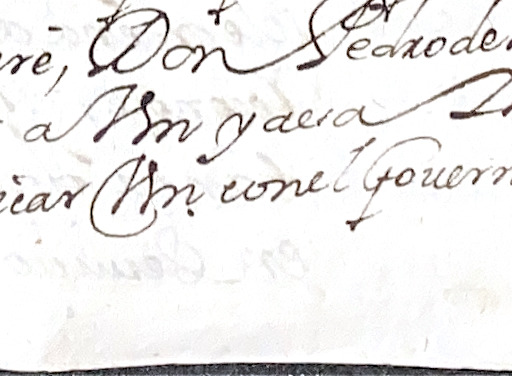 Don Pedro de
a Vm y aesa
icar Vm. con el Gouern